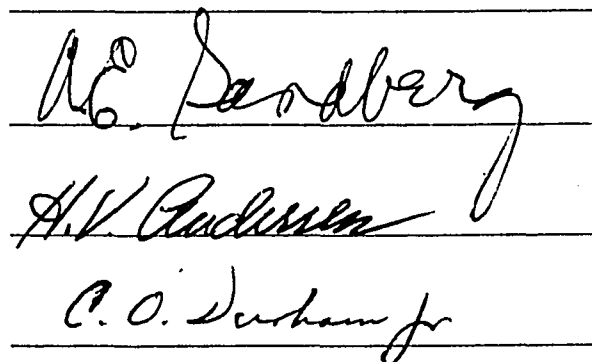 A.E. Sandberg
H.V. Andersen
C. O. Durham Jr